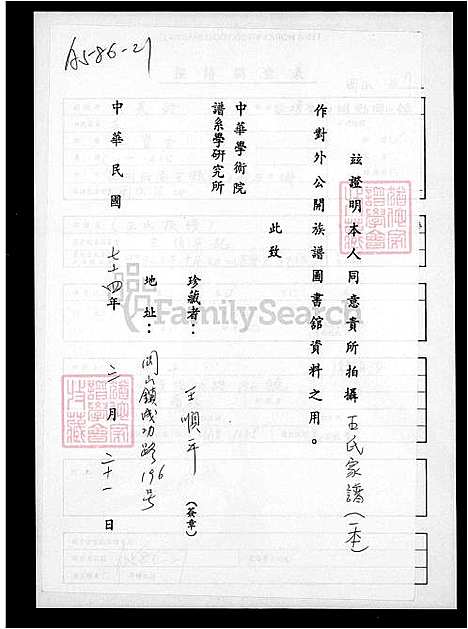 A586-21
茲證明本人同意貴所拍攝王氏家譜(一本)
作對外公開族譜圖書舘資料之用。
此致
中華學術院
譜系學研究所
珍藏者：王順平（簽章）
地址：岡山鎮成功路196号
中華民國七十四年二月二十一日
FamilySearch